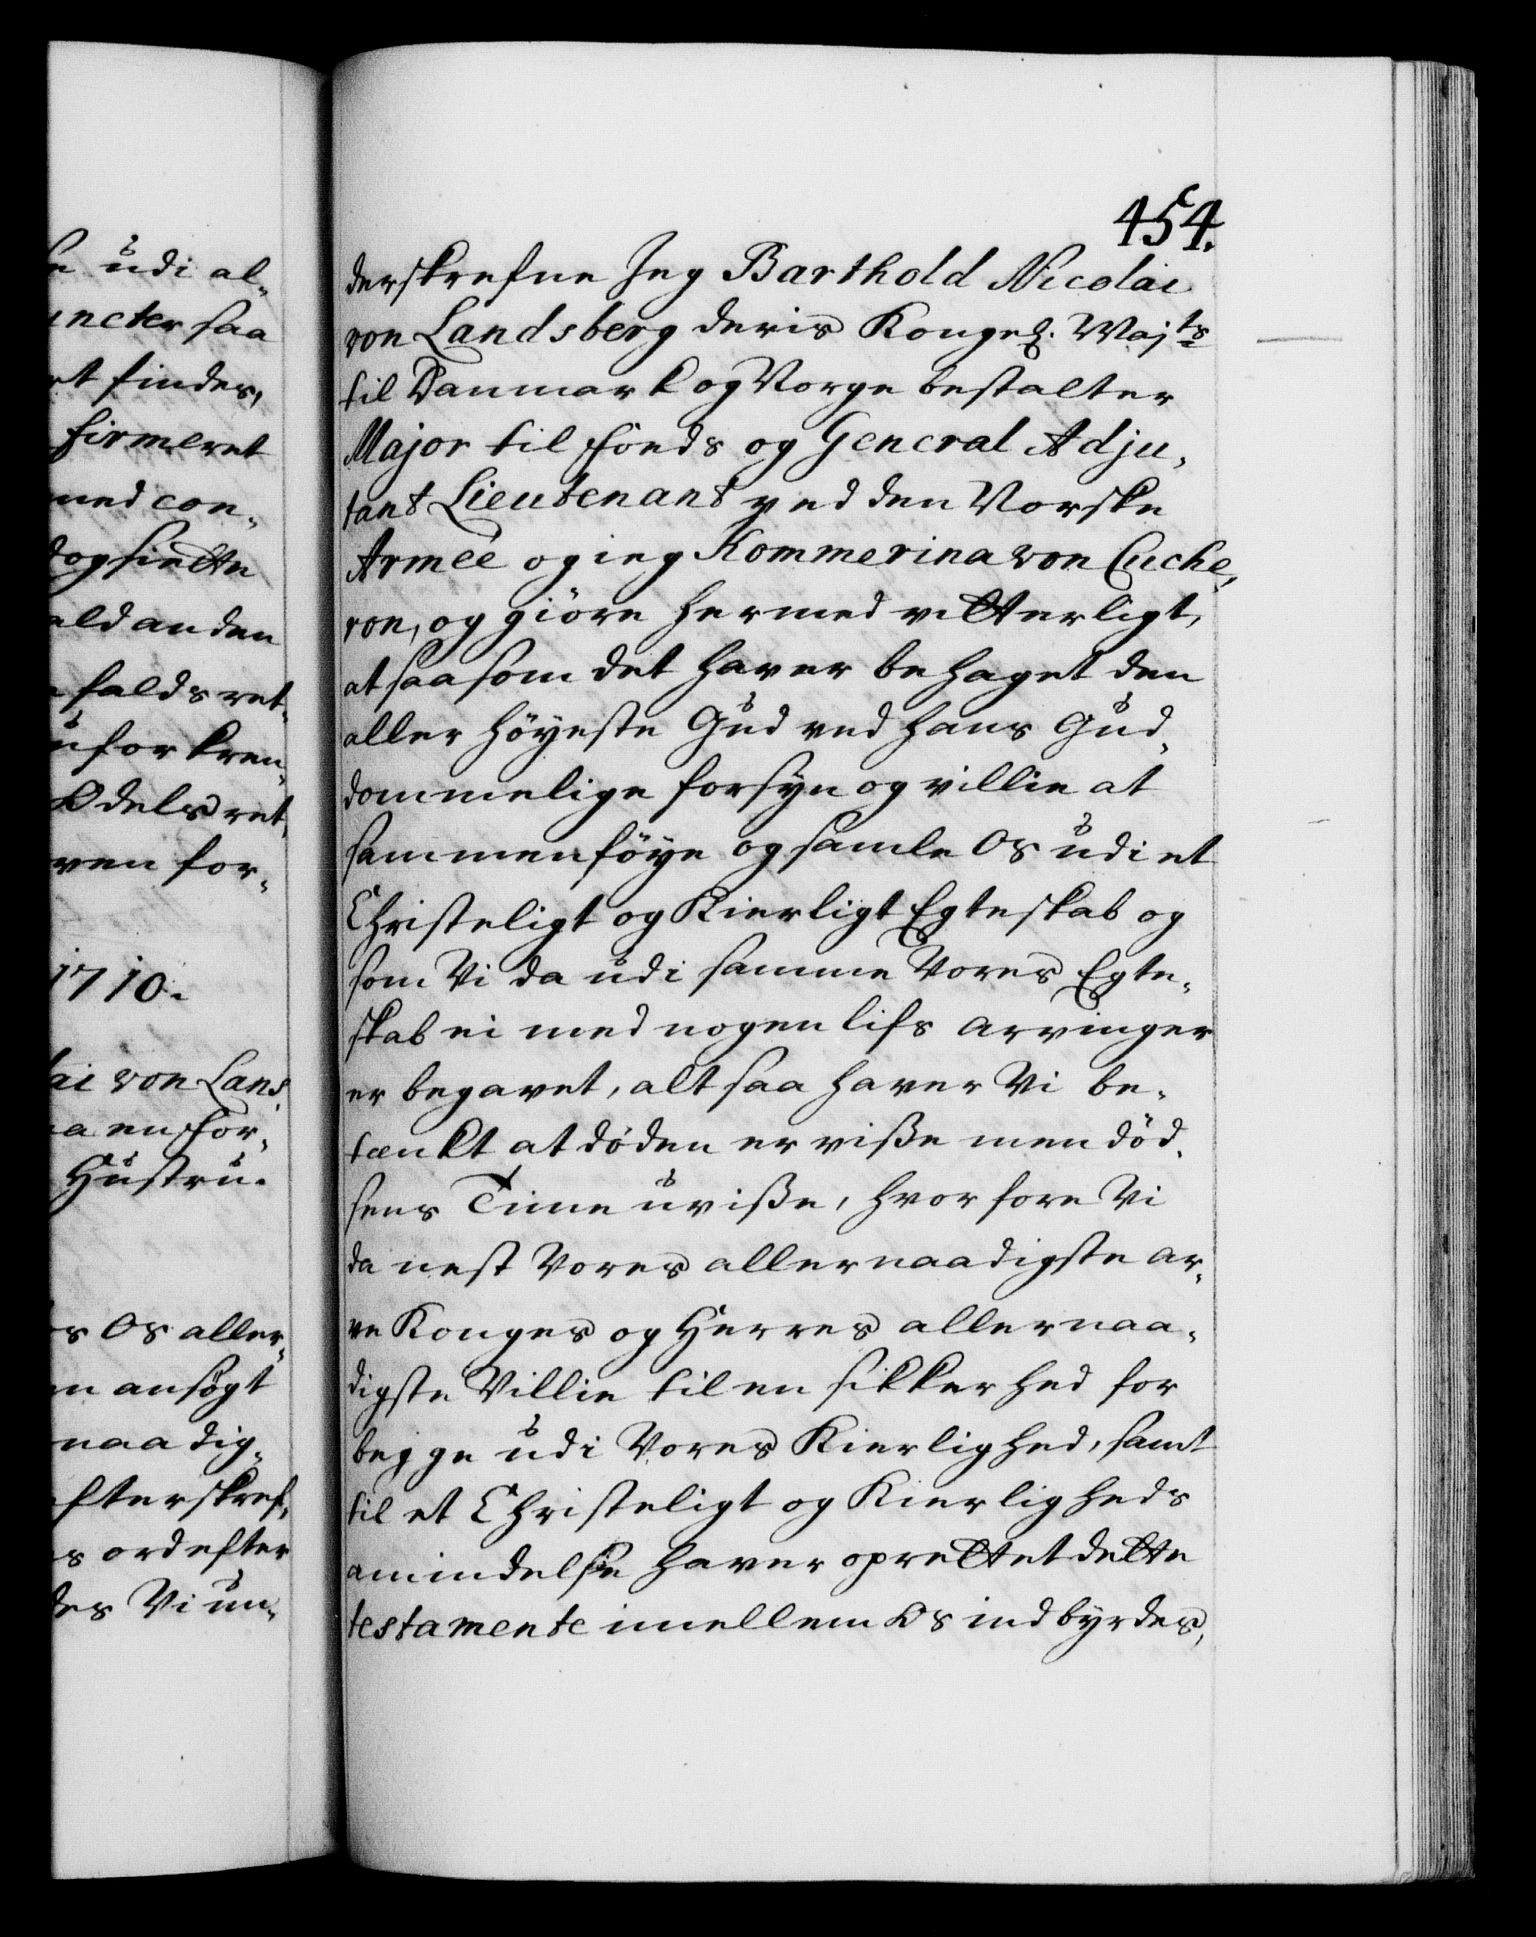 e udi al-
uncter saa
rt findes,
firmeret
med con-
dog hiette
ald anden
falds ret-
uforkren-
Odels ret-
ven for-
1710.
lai von Lans-
aa en for-
Hustru.
os Os aller-
en ansøgt
naadig-
efterskref-
s ord efter
des Vi un-
454.
derskrefne Jeg Barthold Nicolai
von Landsberg deris Kongel. Maj.ts
til Danmark og Norge bestalter
Major til fods og General Adju-
tant Lieutenant ved den Norske
Armée og jeg Kommerina von Cuche-
ron, og giöre hermed vitterligt,
at saasom det haver behaget den
aller höyeste Gud ved hans Gud-
dommelige forsyn og villie at
sammenföye og samle Os udi et
Christeligt og Kierligt Egteskab og
som Vi da udi samme Vores Egte-
skab ei med nogen lifs arvinger
er begavet, alt saa haver Vi be-
tænkt at döden er viße men död-
sens Time uviße, hvorfore Vi
da nest Vores allernaadigste ar-
ve Konges og Herres allernaa-
digste Villie til en sikkerhed for
begge udi Vores Kierlighed, samt
til et Christeligt og Kierligheds
amindelse haver oprettet dette
testamente imellem Os indbyrdes,